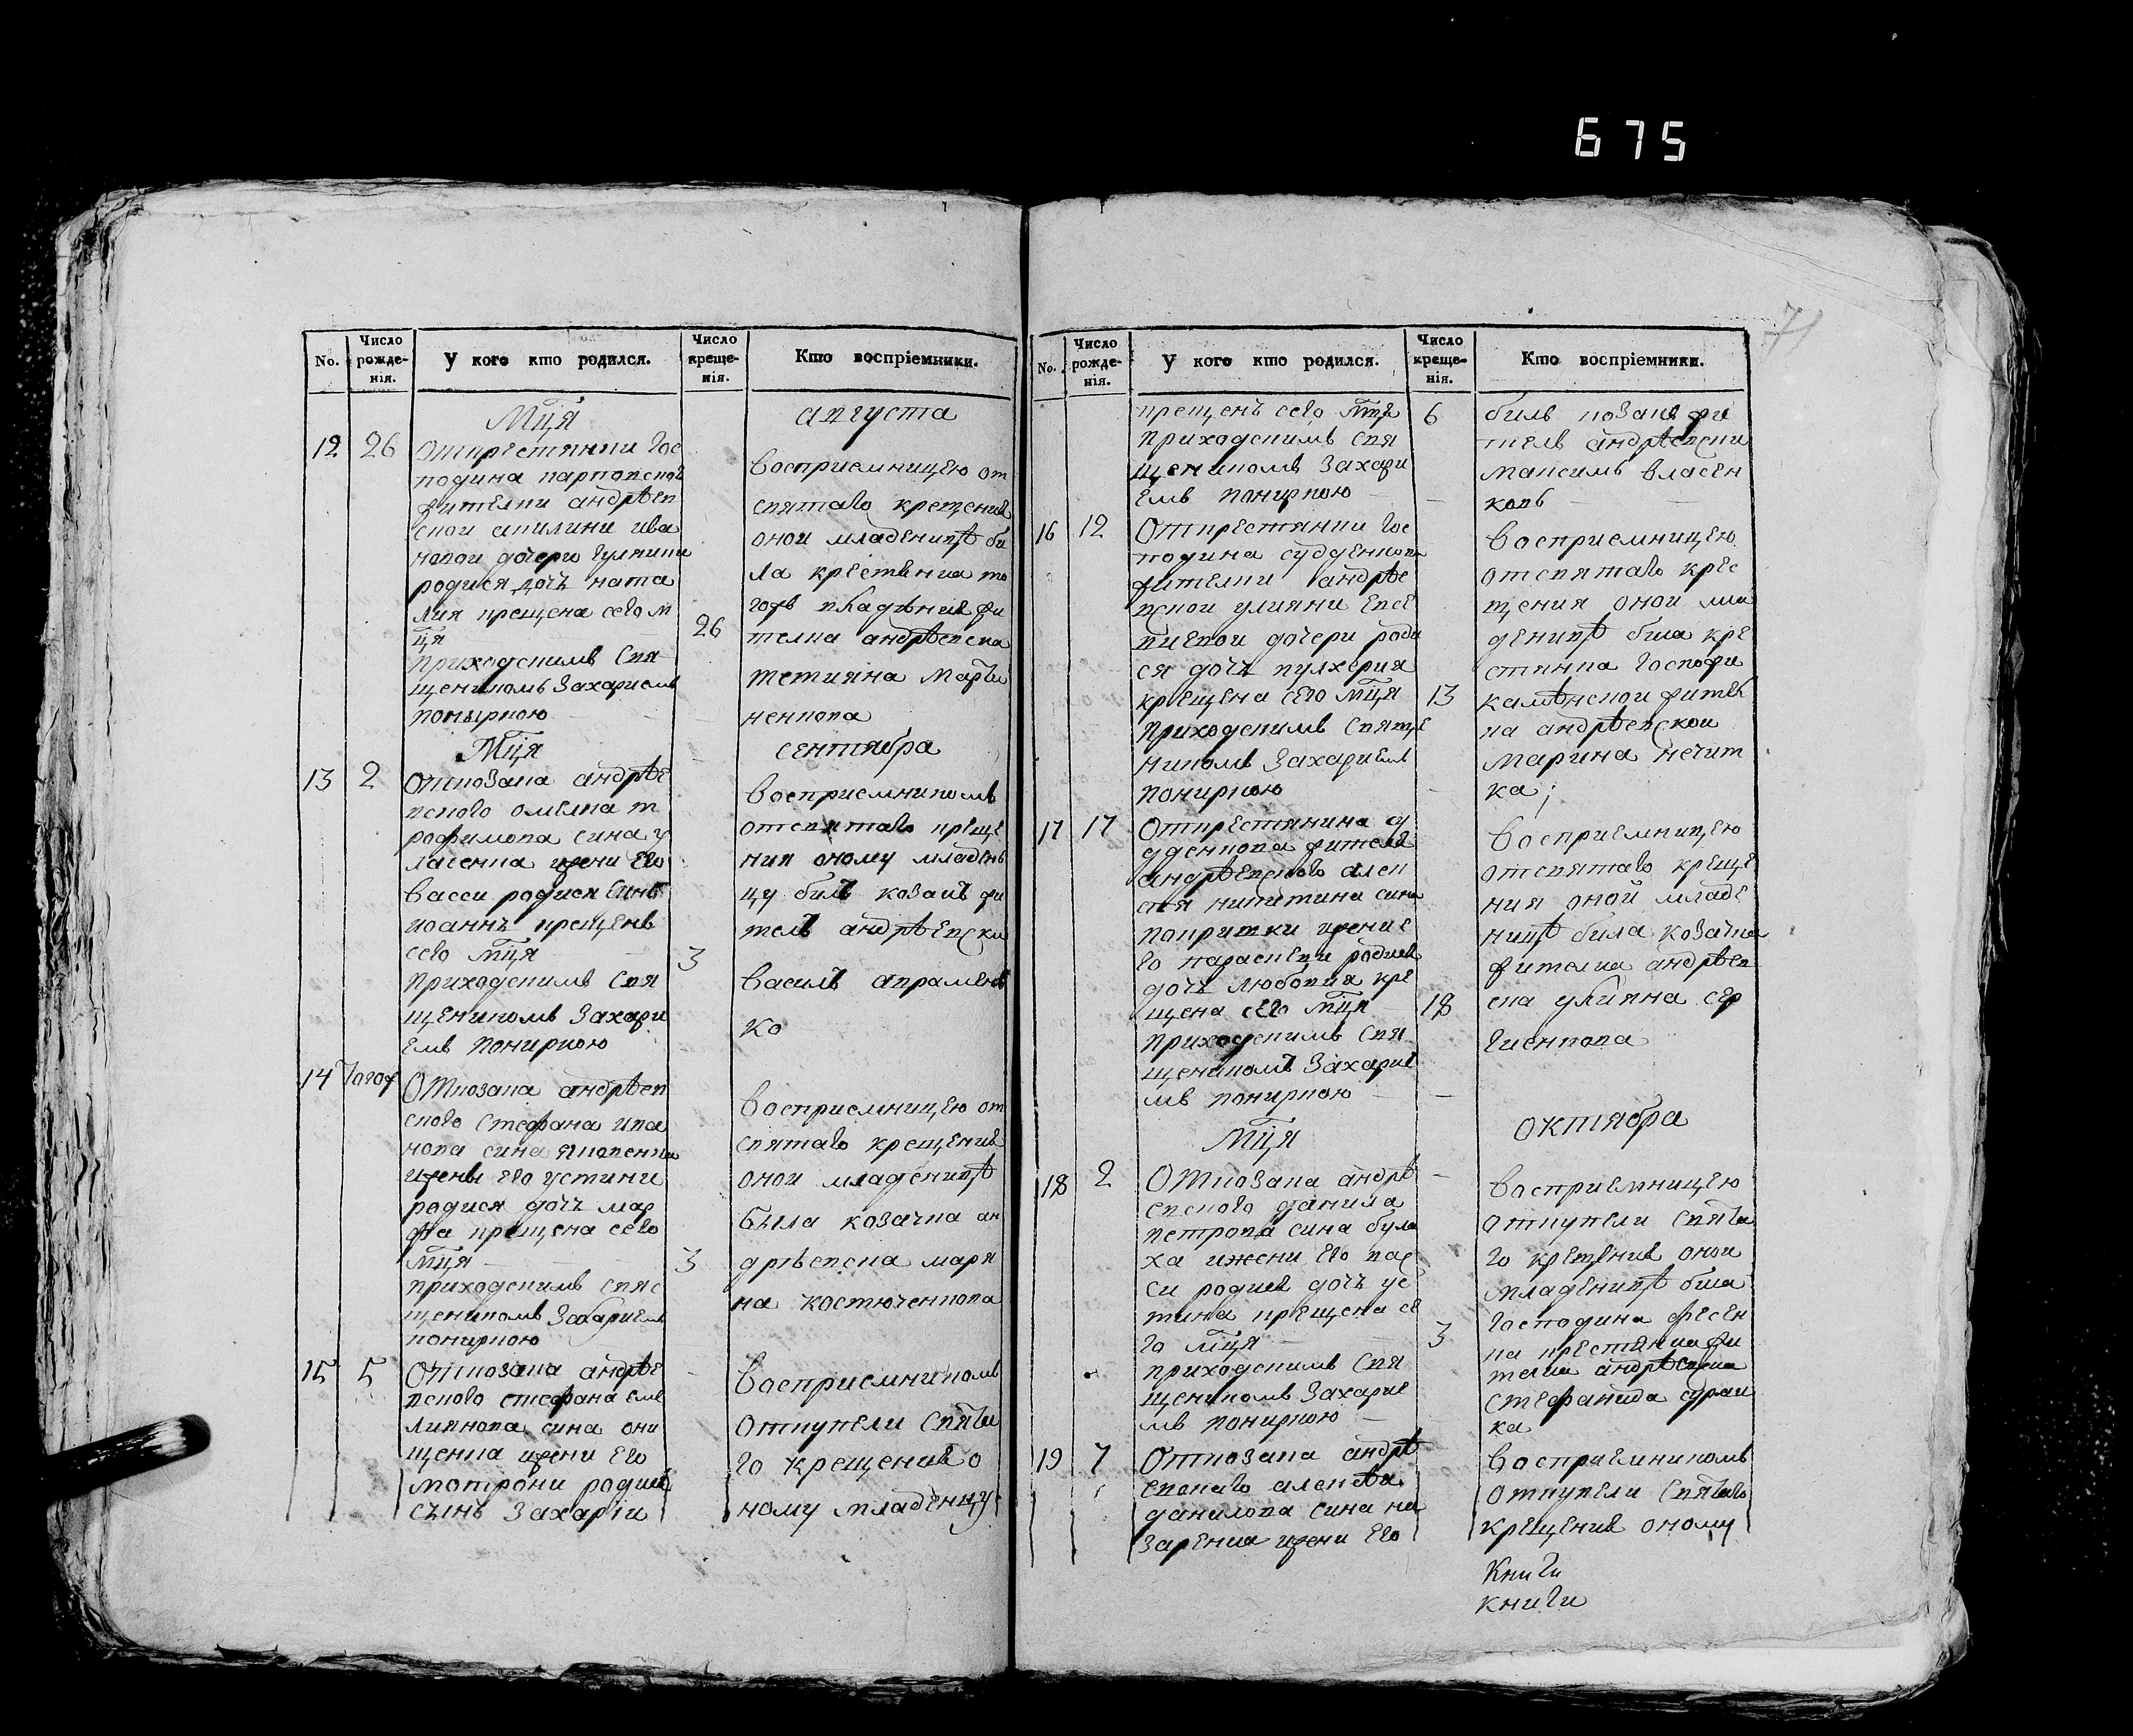 675
71
No.
Число рожде-нія.
У кого кто родился.
Число креще-нія.
Кто воспріемники.
Мця
августа
12
26
Открестянки гос
подина
жителки андрѣев
ской акилини ива
новой дочери
родися дочъ ната
лия крещена сего м
ця
26
приходскимъ свя
щеникомъ Захариемъ
поныркою
восприемницею от
святаго крещения
оной младеницѣ би
ла крестянка то
гожъ владѣния жи
телка андрѣевска
тетияна
ненкова
Мця
сентября
13
2
Откозака андрѣе
вского омелка т
рофимова сина у
ласенка ижени его
васси родися синъ
иоаннъ крещенъ
сего мця
3
приходскимъ свя
щеникомъ Захари
емъ пониркою
восприемникомъ
отсвятаго креще
ния оному младен
цу билъ козакъ жи
тель андрѣевски
василь авраменъ
ко
14
Тогож
Откозака андрѣев
ского стефана ива
нова сина яковенка
ижены его устини
родися дочъ мар
фа крещена сего
мця
3
приходскимъ свяс
щеникомъ Захариемъ
пониркою
восприемницею от
святаго крещения
оной младеницѣ
была козачка ан
дрѣевска мари
на костюченкова
15
5
Откозака андрѣе
вского стефана еме
лиянова сина они
щенка ижени его
мотрони родися
сынъ Захарiи
восприемникомъ
откупели свята
го крещения о
ному младенцу
No.
Число рожде-нія.
У кого кто родился.
Число креще-нія.
Кто воспріемники.
крещенъ сего мця
6
приходскимъ свя
щеникомъ Захари
емъ пониркою
билъ козакъ жи
тель андрѣевски
максимъ власен
ковъ
16
12
Открестянки гос
подина судденкова
жителки андрѣе
вской улияни евсе
виевой дочери роди
ся дочъ пулхерия
крещена сего мця
13
приходскимъ свяще
никомъ Захариемъ
пониркою
восприемницею
отсвятаго крес
щения оной мла
деницѣ била кре
стянка госпожи
камѣнской жител
ка андрѣевской
марина нечит
ка;
17
17
Открестянина су
дденкова жителя
андрѣевского алек
сѣя никитина сина
ижени е
го параскеви родися
дочъ любовия кре
щена сего мця
18
приходскимъ свя
щеникомъ Захарие
мъ пониркою
восприемницею
отсвятаго креще
ния оной младе
ницѣ била козачка
жителка андрѣев
ска улияна сер
гиенкова
Мця
октября
18
2
Откозака андрѣ
евского данила
петрова сина була
ха ижени его вас
си родися дочъ ус
тина крещена се
го мця
3
приходскимъ свя
щеникомъ Захарие
мъ пониркою
восприемницею
откупели свята
го крещения оной
младеницѣ била
господина фесен
ка крестянка жи
телка андрѣевска
стефанида
ка
19
7
Откозака андрѣ
евского алексѣя
данилова сина на
заренка ижени его
восприемникомъ
откупели святаго
крещения оному
книги
книги